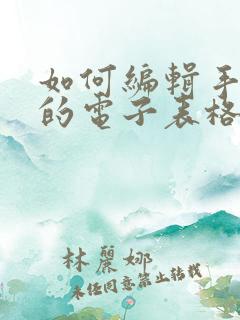 如何編輯手
的電子表格
林麗娜
未经同意禁止转载